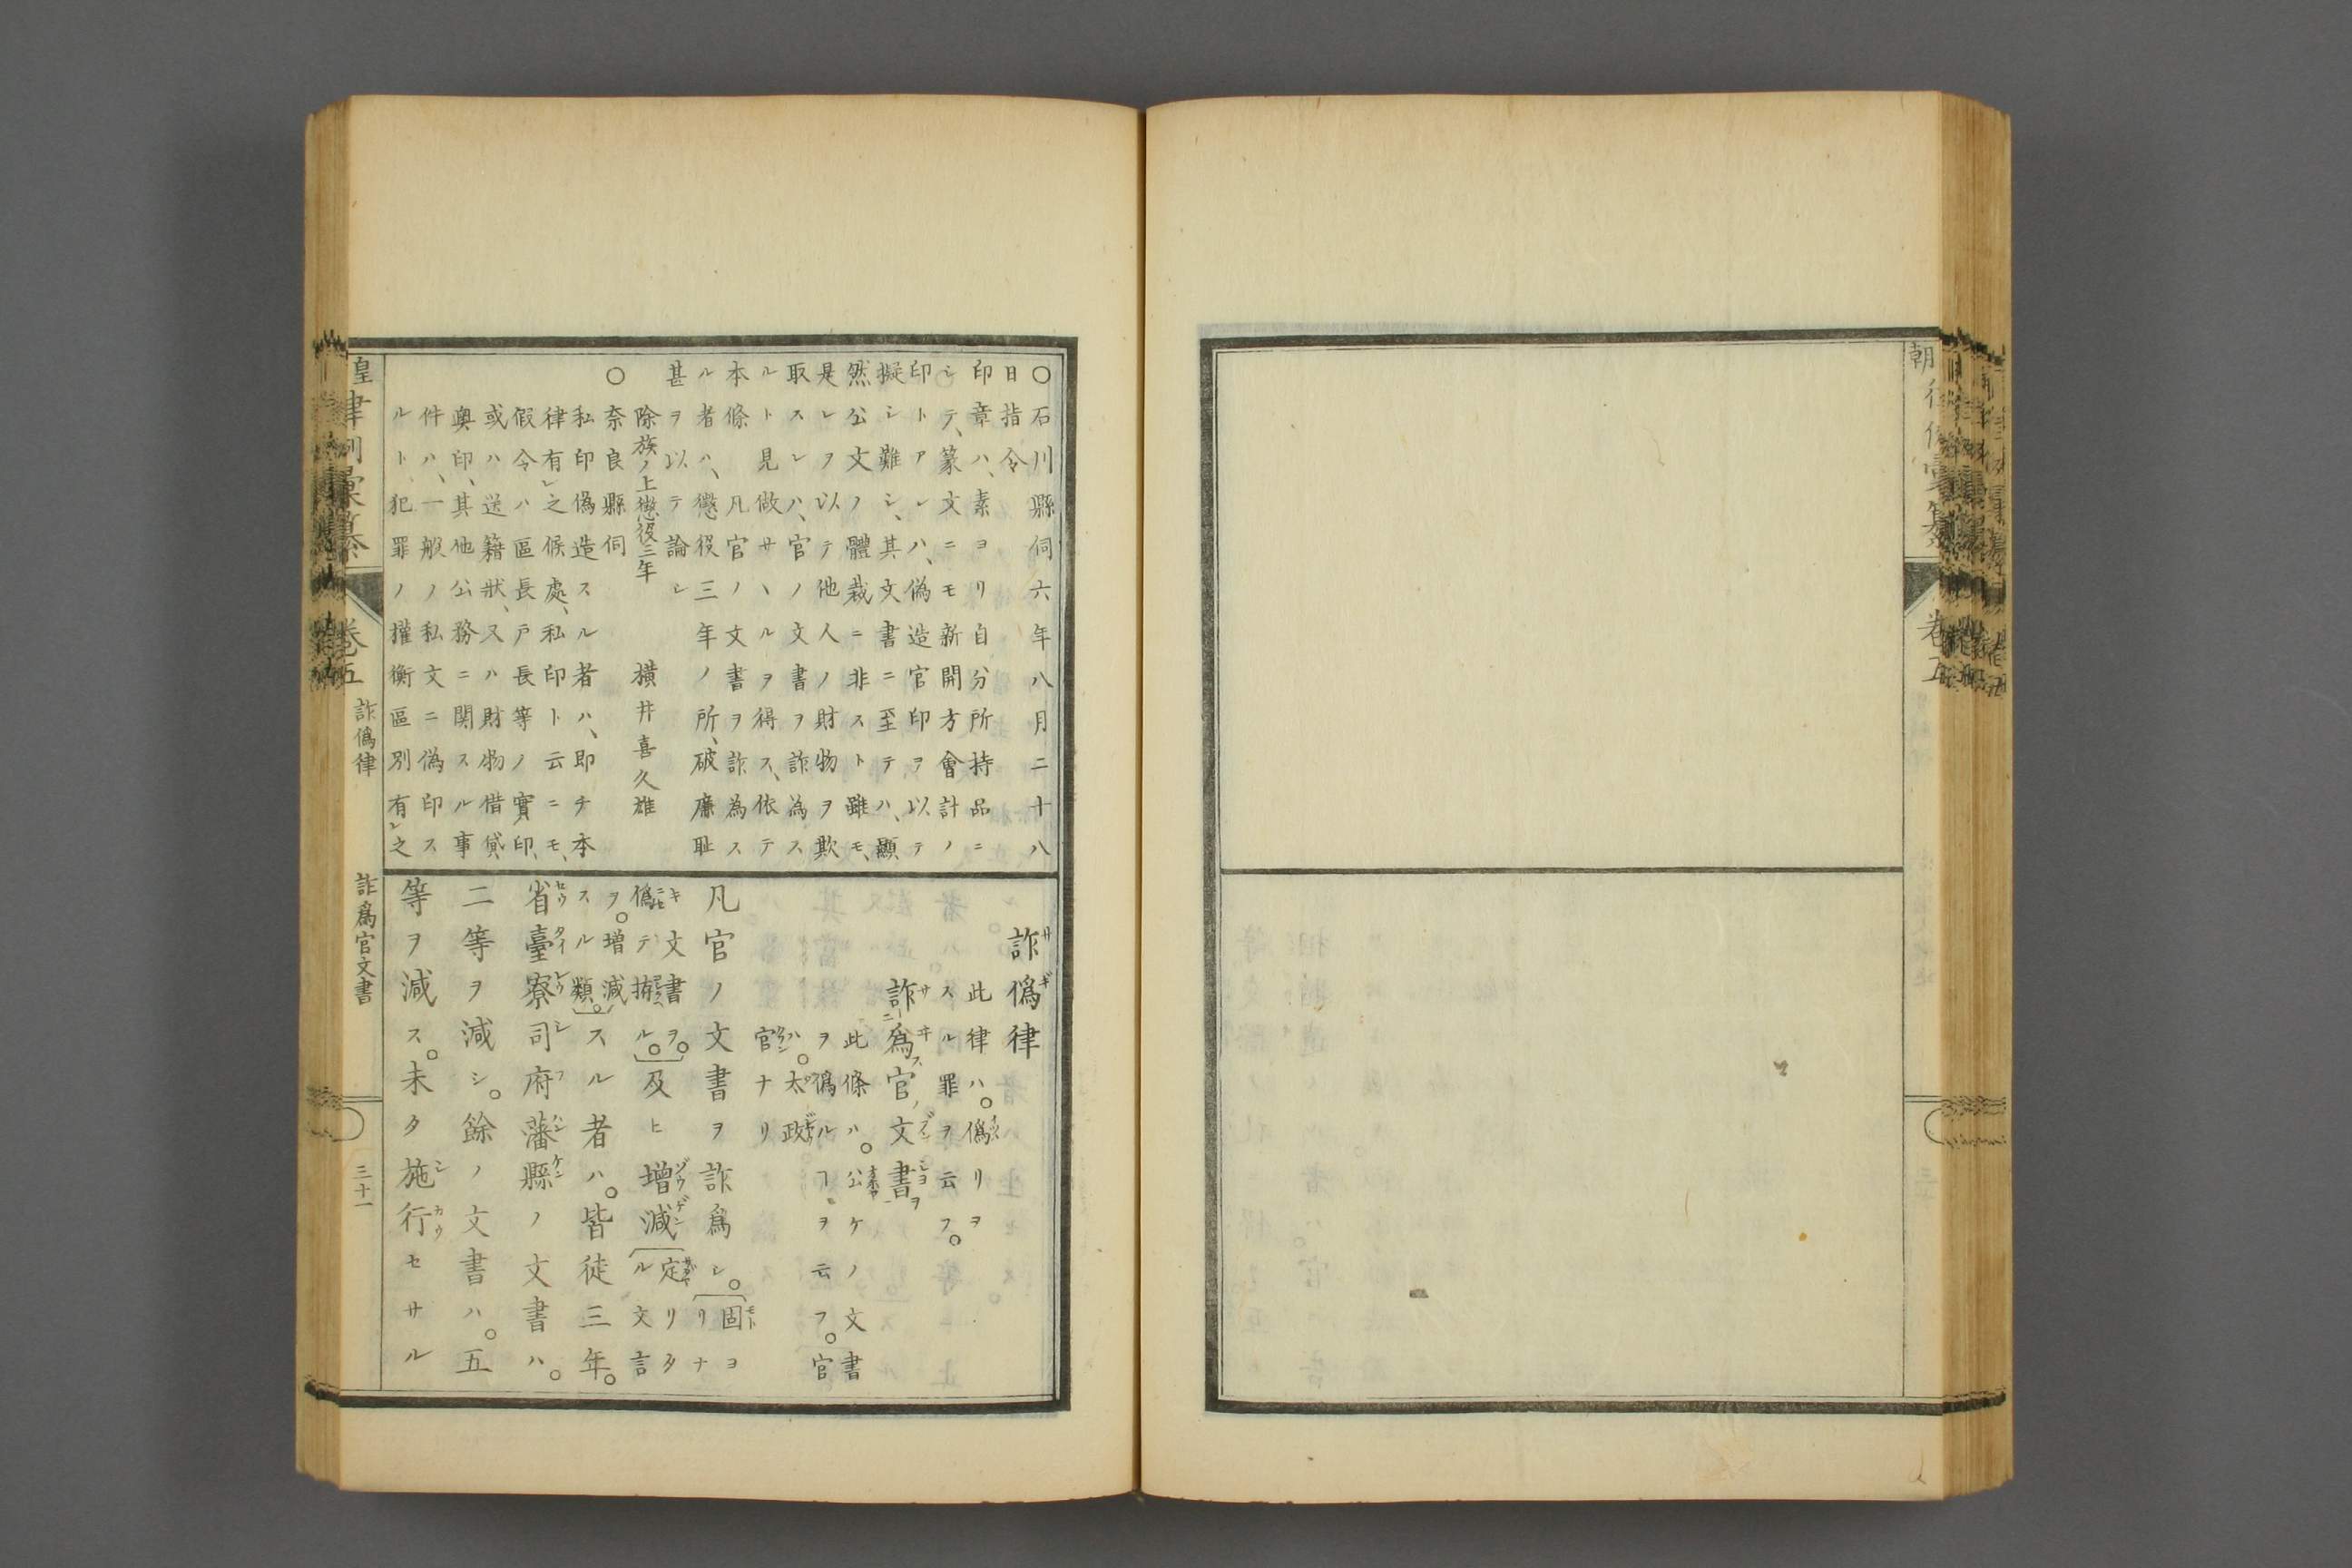 〇石川縣伺六年八月二十八
日指令
印章ハ、素ヨリ自分所持品ニ
シテ、篆文ニモ新開方會計ノ
印トアレハ、偽造官印ヲ以テ
擬シ難シ、其文書ニ至テハ、顯
然公文ノ體裁ニ非スト雖モ、
是レヲ以テ他人ノ財物ヲ欺
取スレハ、官ノ文書ヲ詐為ス
ルト見做サヽルヲ得ス、依テ
本條凡官ノ文書ヲ詐為ス
ル者ハ、懲役三年ノ所、破廉耻
甚ヲ以テ論シ
除族ノ上懲役三年 横井喜久雄
〇奈良縣伺
私印偽造スル者ハ、即チ本
律有レ之候處、私印ト云ニモ、
假令ハ區長戸長等ノ實印、
或ハ送籍狀、又ハ財物借貸、
奥印、其他公務ニ関スル事
件ハ、一般ノ私文ニ偽印ス
ルト、犯罪ノ權衡區別有レ之
詐僞律
此律ハ。僞リヲ
スル罪ヲ云フ。
詐爲官文書
此條ハ。公ケノ文書
ヲ僞ルヿヲ云フ。官
ハ。太政
官ナリ
凡官ノ文書ヲ詐爲シ。固ヨ
リナ
キ文書ヲ。
僞テ拵ル。及ヒ增減定リタ
ル文言
ヲ。增減
スル類。スル者ハ。皆徒三年。
省臺寮司府藩縣ノ文書ハ。
二等ヲ減シ。餘ノ文書ハ。五
等ヲ減ス。未タ施行セサル
卷五 詐僞律 詐爲官文書 三十一